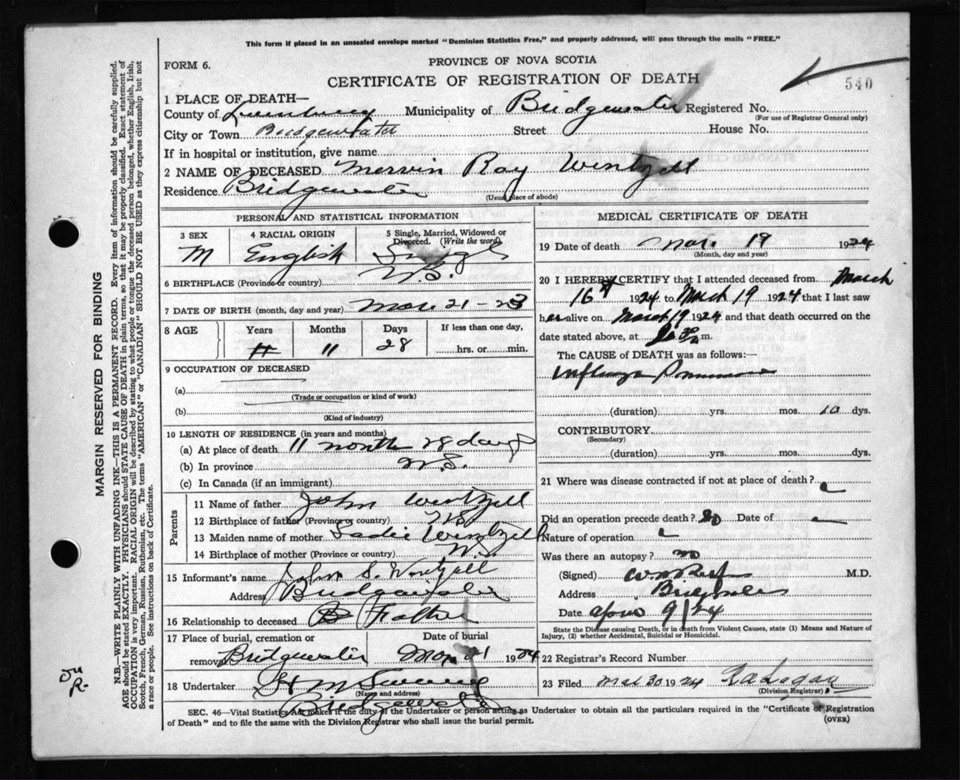 This form if placed in an unsealed envelope marked "Dominion Statistics Free," and properly addressed, will pass through the mails "FREE."
FORM 6.
PROVINCE OF NOVA SCOTIA
CERTIFICATE OF REGISTRATION OF DEATH
540
1 PLACE OF DEATH—
County of Lunenburg Municipality of Bridgewater Registered No.
(For use of Registrar General only)
City or Town Bridgewater Street House No.
If in hospital or institution, give name
2 NAME OF DECEASED Mervin Ray Wentzell
Residence Bridgewater
(Usual place of abode)
PERSONAL AND STATISTICAL INFORMATION
3 SEX 4 RACIAL ORIGIN 5 Single, Married, Widowed or Divorced. (Write the word)
M English Single
6 BIRTHPLACE (Province or country) N.S.
7 DATE OF BIRTH (month, day and year) Mar 21-23
8 AGE Years Months Days If less than one day,
11 28 hrs. or min.
9 OCCUPATION OF DECEASED
(a)
(Trade or occupation or kind of work)
(b)
(Kind of industry)
10 LENGTH OF RESIDENCE (in years and months)
(a) At place of death 11 months 28 days
(b) In province N.S.
(c) In Canada (if an immigrant)
Parents
11 Name of father John Wentzell
12 Birthplace of father (Province or country) N.S.
13 Maiden name of mother Sadie Wentzell
14 Birthplace of mother (Province or country) N.S.
15 Informant's name John S. Wentzell
Address Bridgewater
16 Relationship to deceased Father
17 Place of burial, cremation or removal Bridgewater Date of burial Mar 21 1924
18 Undertaker H M
(Name and address)
Bridgewater
MEDICAL CERTIFICATE OF DEATH
19 Date of death Mar 19 1924
(Month, day and year)
20 I HEREBY CERTIFY that I attended deceased from March
16th 1924 to March 19 1924 that I last saw
h alive on March 19 1924 and that death occurred on
date stated above, at m.
The CAUSE OF DEATH was as follows:—
Influenza Pneumonia
(duration) yrs. mos. 10 dys.
CONTRIBUTORY
(Secondary)
(duration) yrs. mos. dys.
21 Where was disease contracted if not at place of death?
Did an operation precede death? Date of
Nature of operation
Was there an autopsy? no
(Signed) M.D.
Address Bridgewater
Date April 9/24
State the Disease causing Death, or in death from Violent Causes, state (1) Means and Nature of Injury, (2) whether Accidental, Suicidal or Homicidal.
22 Registrar's Record Number
23 Filed Mar 30 1924
(Division Registrar)
SEC. 46—Vital Statistics Act makes it the duty of the Undertaker or person acting as Undertaker to obtain all the particulars required in the "Certificate of Registration
of Death" and to file the same with the Division Registrar who shall issue the burial permit.
(OVER)
MARGIN RESERVED FOR BINDING
N.B.—WRITE PLAINLY WITH UNFADING INK—THIS IS A PERMANENT RECORD. Every item of information should be carefully supplied.
AGE should be stated EXACTLY. PHYSICIANS should STATE CAUSE OF DEATH in plain terms, so that it may be properly classified. Exact statement of
OCCUPATION is very important. RACIAL ORIGIN will be described by stating to what people or tongue the deceased person belonged, whether English, Irish,
Scotch, French, German, Russian, Ruthenian, etc. The terms "AMERICAN" or "CANADIAN" SHOULD NOT BE USED as they express citizenship but not
a race or people. See instructions on back of Certificate.